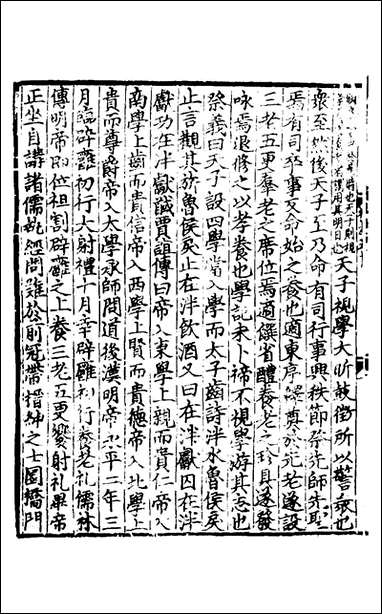 天子視學大昕鼓徵所以警衆也
衆至然後天子至乃命有司行事興秩節祭先師先聖
焉有司卒事反命始之養也適東序釋奠於先老遂設
三老五更羣老之席位焉適饌省醴養老之珍具遂發
咏焉退修之以孝養也學記未卜禘不視學游其志也
祭義曰天子設四學當入學而太子齒詩泮水魯侯戾
止言觀其旂魯侯戾止在泮飲酒又曰在泮獻囚在泮
獻功在泮獻馘賈誼傳曰帝入東學上親而貴仁帝入
南學上齒而貴信帝入西學上賢而貴德帝入北學上
貴而尊爵帝入太學承師問道後漢明帝永平二年三
月臨辟雍初行大射禮十月幸辟雍初行養老礼儒林
傳明帝即位袒割辟雍之上養三老五更饗射礼畢帝
正坐自講諸儒執經問難於前冠帶搢紳之士圜橋門